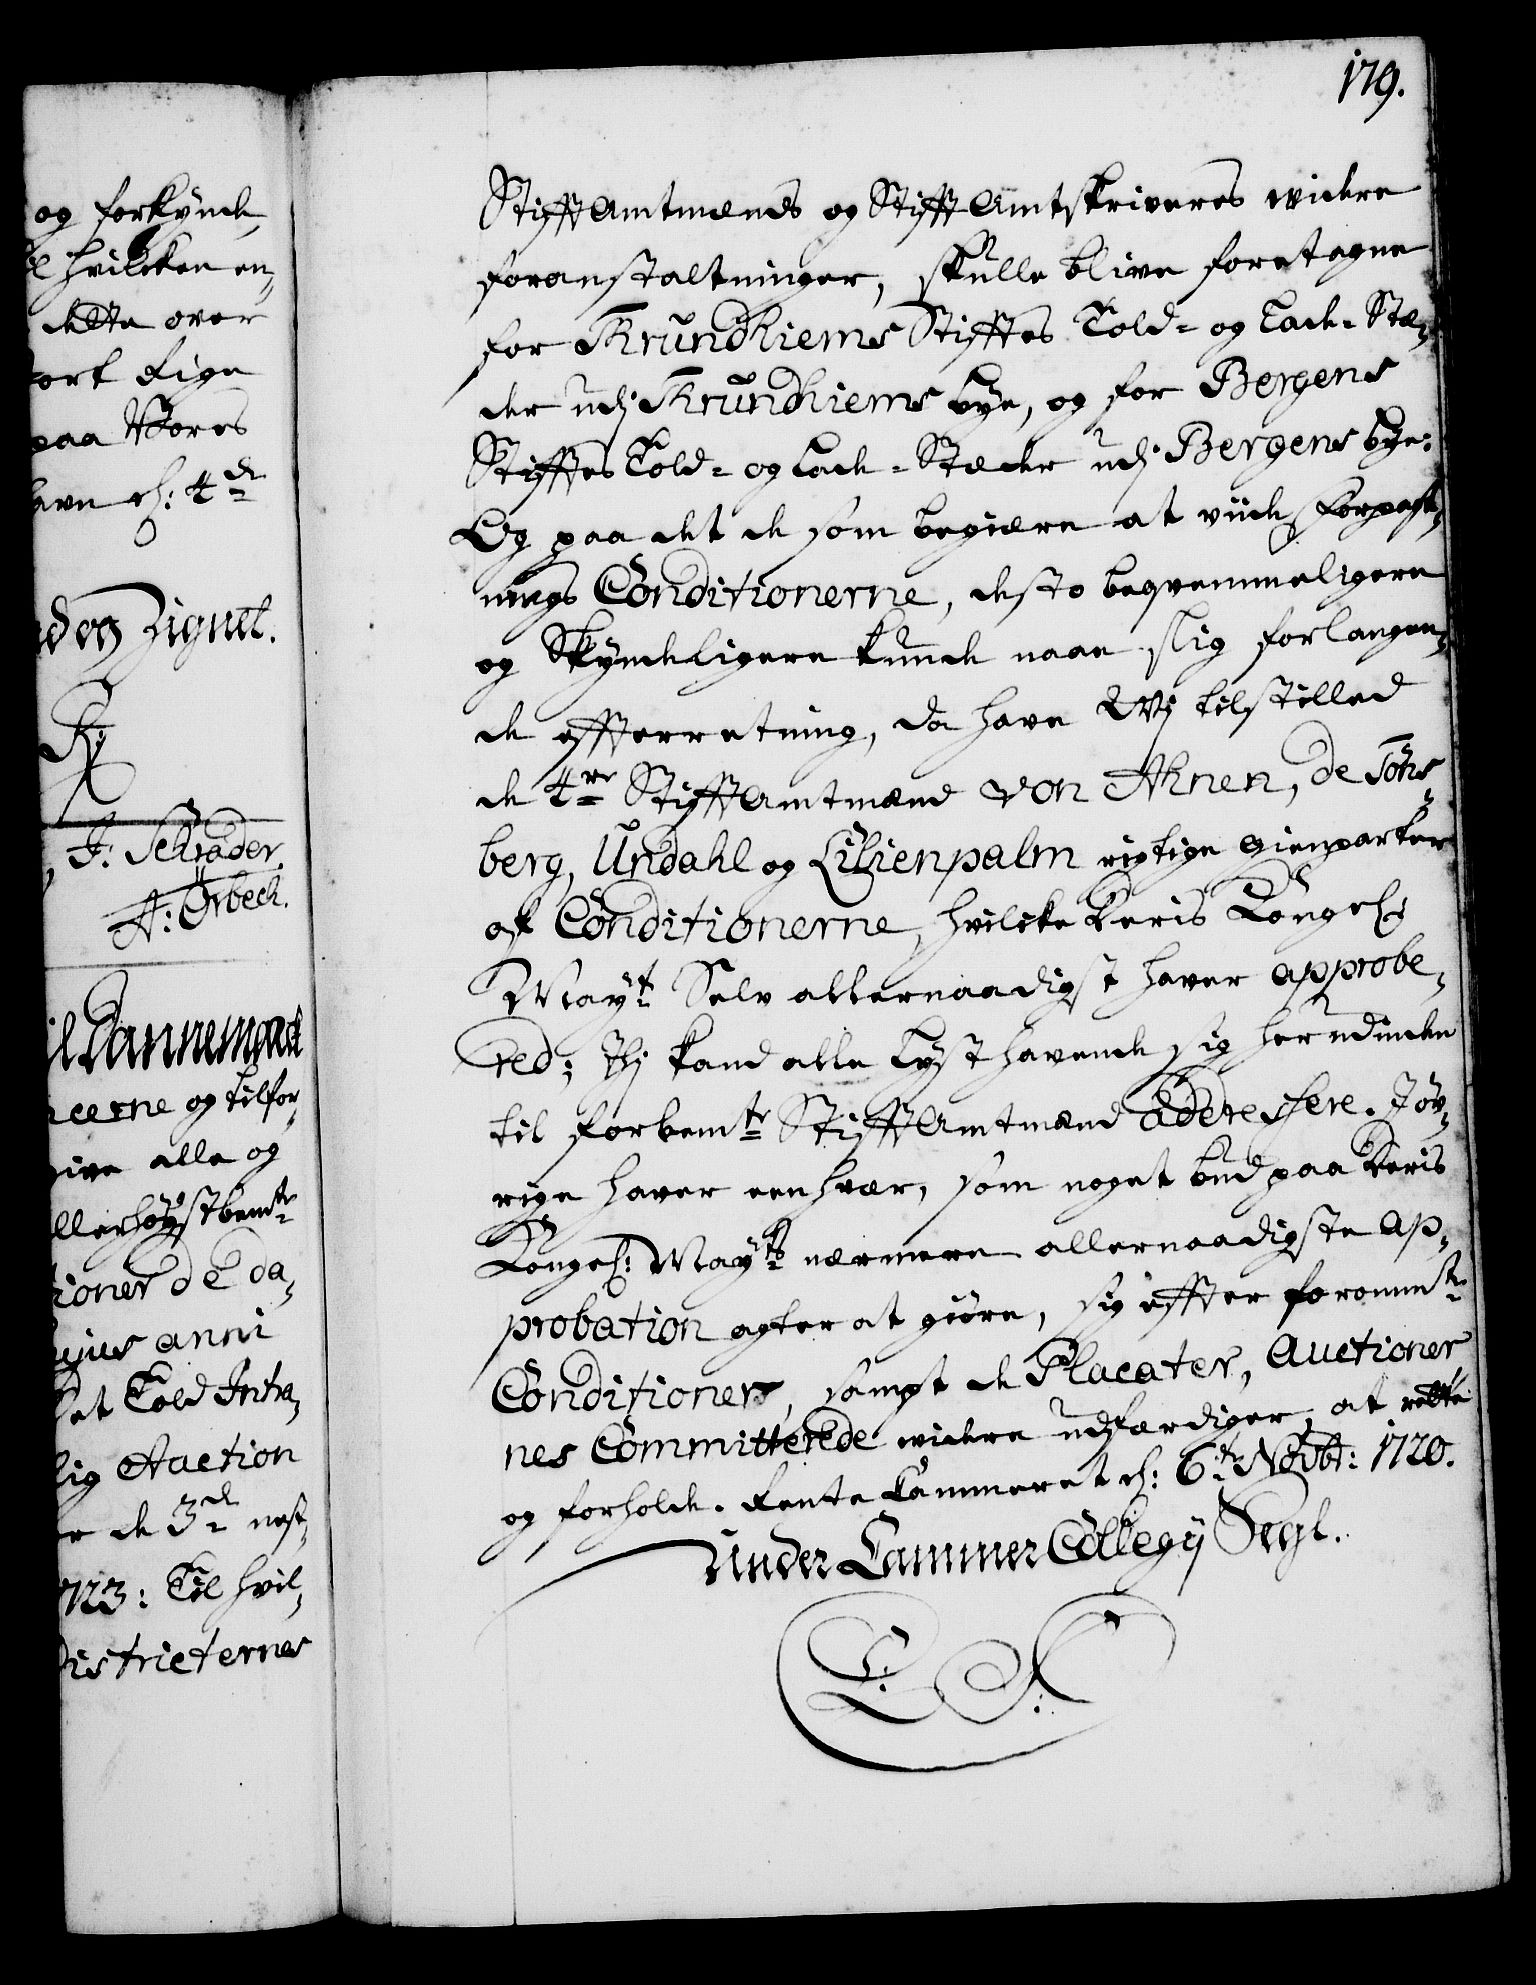 179.
og forkynde,
hvilcken en,
dette over
paa Vores
d: 4de
og Zignet.
F: Schrader.
A: Ørbech.
og tilfor,
alle og
allerhøystbemte
de da,
anni
Told Intra,
Auction
de 3de nest,
1723: Til hvil,
Districternes
Stifft Amtmænds og Stifft Amtskriveres widere
foranstaltninger, skulle blive foretagne
for Trundhiems Stifftes Told- og Lade-Stæ,
der udj Trundhiems bye, og for Bergens
Stifftes Told- og Lade-Stæder udj Bergens bye:
Og paa det de som begiære at viide Forpagt,
nings Conditionerne, desto beqvemmeligere
og Skyndeligere kunde naae slig forlangen,
de effterretning, da have Wj tilstilled
de 4re Stifft Amtmænd von Ahnen, de Töns,
berg, Undahl og Lilienpalm rigtige gienparter
af Conditionerne, hvilcke Deris Kongel:
Mayt Selv allernaadigst haver approbe,
red; Thj kand alle Lysthavende sig herudinden
til forbemte Stifft Amtmænd adressere. Jøv,
rige haver een hvær, som noget bud paa Deris
Kongel: Mayts nærmere allernaadigste Ap,
probation agter at giøre, sig effter forommte
Conditioner, sampt de Placater, Auctioner,
nes Committerede widere udfærdiger, at rette
og forholde. Rente Cammeret d: 6te Novbr: 1720.
Under Cammer Collegij Segl.